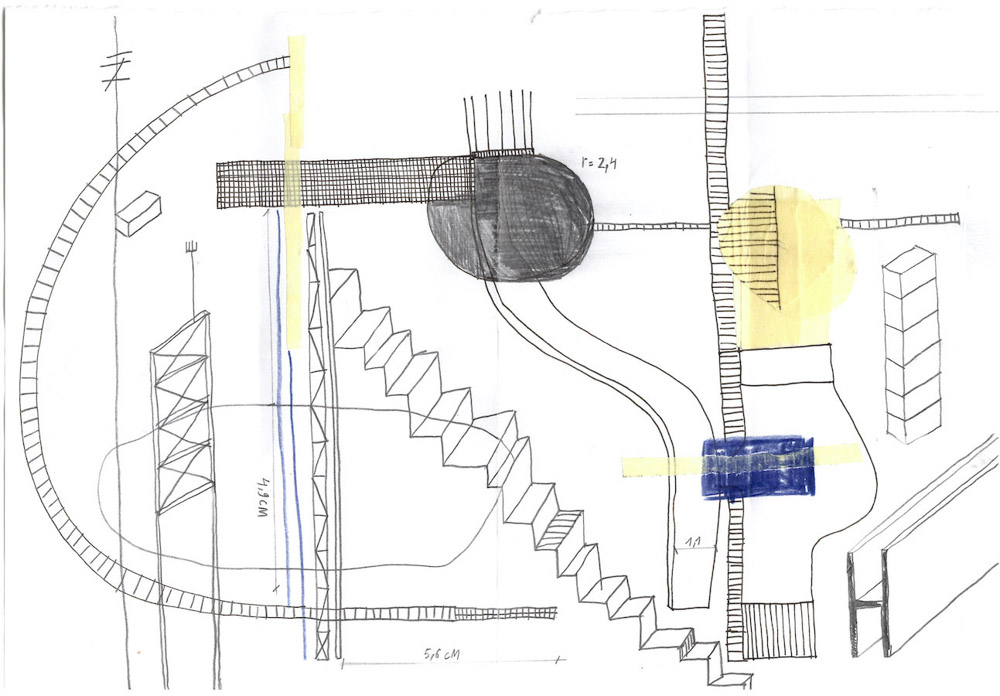 r=2,4
4,9CM
1,1
5,6CM